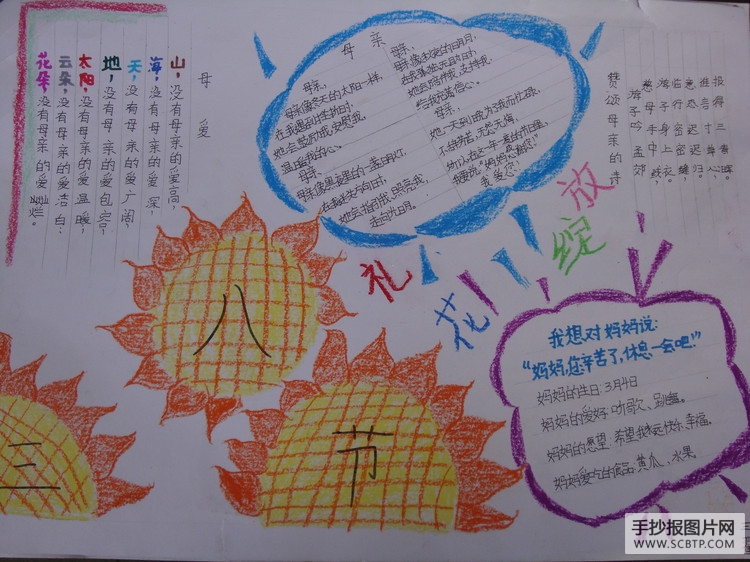 母爱
山，没有母亲的爱高；
海，没有母亲的爱深；
天，没有母亲的爱广阔；
地，没有母亲的爱包容；
太阳，没有母亲的爱温暖；
云朵，没有母亲的爱洁白；
花朵，没有母亲的爱灿烂。
母亲
母亲，
母亲像冬天的太阳一样，
在我遇到挫折时，
她会鼓励我，安慰我，
温暖我的心。
母亲，
母亲像黑夜里的一盏明灯，
在我迷失方向时，
她会指引我，照亮我，
走向光明。
母亲，
母亲像皎洁的明月，
在我孤独无助时，
她会陪伴我，支持我，
给我充满信心。
母亲，
她一天到晚为了我而忙碌，
不怕劳苦，无怨无悔，
所以，在这一年一度的节日里，
我要说：“妈妈，感谢您！”
我爱您！
赞颂母亲的诗
游子吟 孟郊
慈母手中线，
游子身上衣。
临行密密缝，
意恐迟迟归。
谁言寸草心，
报得三春晖。
礼花绽放
三八节
我想对妈妈说：
“妈妈，您辛苦了，休息一会吧！”
妈妈的生日：3月4日
妈妈的爱好：听歌、跳舞。
妈妈的愿望：希望我永远快乐、幸福。
妈妈爱吃的食品：黄瓜、水果。
手抄报图片网
WWW.SCBTP.COM